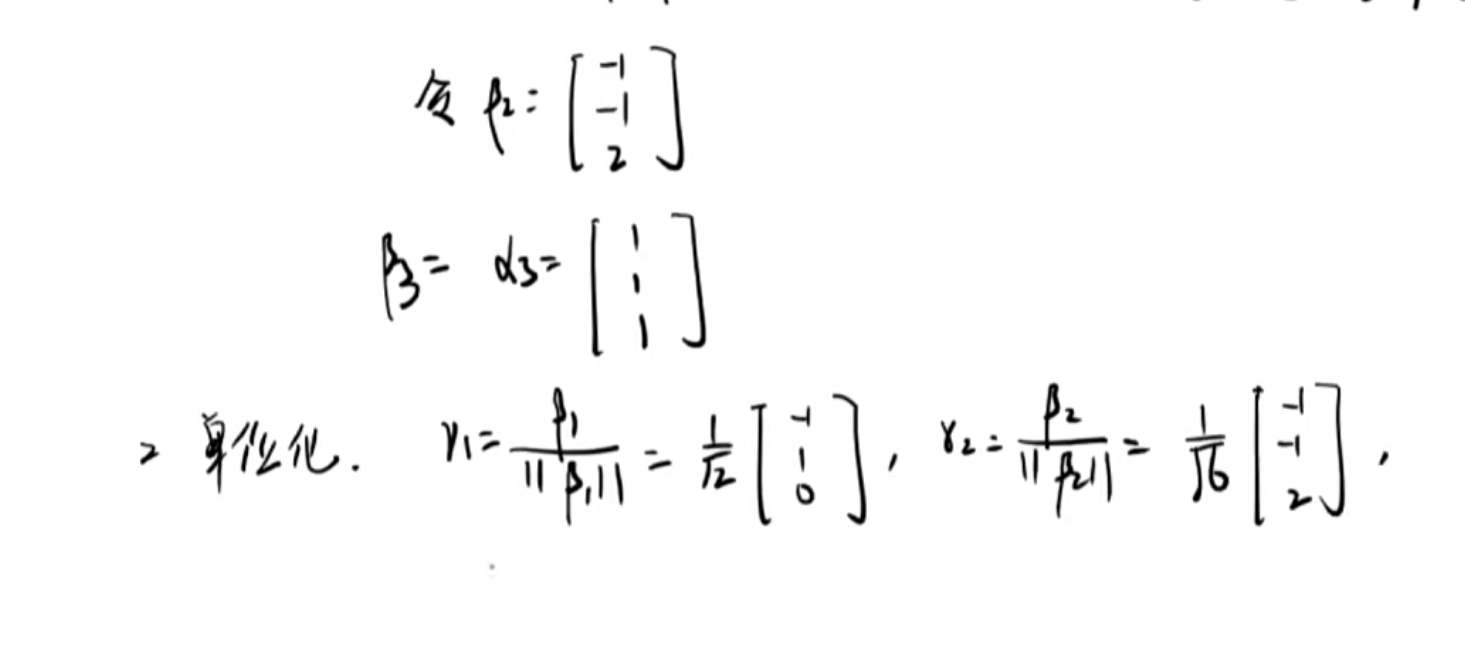 令 β₂ = [-1 -1 2]
β₃ = α₃ = [1 1 1]
2 单位化. γ₁ = β₁/||β₁|| = 1/√2 [-1 1 0], γ₂ = β₂/||β₂|| = 1/√6 [-1 -1 2],